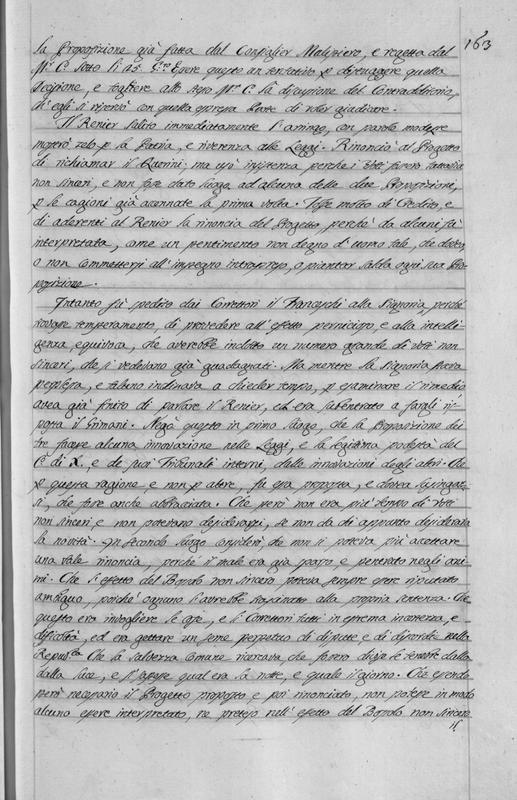 163
la Proposizione già fatta dal Consiglier Malipiero, e regetta dal
M. C. sotto li 25. Essere questo un tentativo p distruggere quella
Decisione, e togliere allo stesso M. C. la discusione del Contradditorio,
ch'egli si riservò con quella espressa Parte di voler giudicare.
Il Renier salito immediatamente l'aringo, con parole modeste
mostrò zelo p la Patria, e riverenza alle Leggi. Rinonciò al Progetto
di richiamar il Querini; ma insistenza perche i Voti furono tuttavia
non sinceri, e non fosse dato luogo ad alcuna delle due Proposizioni,
p le cagioni già accennate la prima volta. Tolse molto di Credito, e
di aderenti al Renier la rinoncia del Progetto, perchè da alcuni fù
interpretata, come un pentimento non degno d'uomo tale, che doveva
o non commettersi all'impegno intrapreso, o piantar salda ogni sua Pro-
posizione.
Intanto fù spedito dai Corretori il Franceschi alla Signoria, perchè
trovasse temperamento, di provedere all'effetto pernicioso, e alla intelli-
genza equivoca, che averebbe indotto un numero grande di Voti non
sinceri, che si vedevano già guadagnati. Ma mentre la Signoria stava
perplessa, e taluno inclinava a chieder tempo, p esaminare il rimedio
avea già finito di parlare il Renier, ed era subentrato a fargli ris-
posta il Grimani. Negò questo in primo luogo, che la Proposizione dei
tre facesse alcuna innovazione nelle Leggi, e la legitima podestà del
C. di X., e de suoi Tribunali interni, dalle innovazioni degli altri. Che
p questa ragione e non p altre, fù era proposta, e doveva lusingar-
si, che fosse anche abbracciata. Che però non era più tempo di Voti
non sinceri e non potevano desiderarsi, se non da chi appunto desiderava
la novità. In secondo luogo considerò, che non si poteva più accettare
una tale rinoncia, perchè il male era già sparso, e penetrato negli ani-
mi. Che l'effetto del Bossolo non sincero poteva sempre essere riputato
ambiguo, poichè ognuno l'avrebbe strascinato alla propria sentenza. Che
questo era involgere le cose, e li Corretori tutti in estrema incertezza, e
difficoltà, ed era gettare un seme perpetuo di dispute e di discordie nella
Repub.ca Che la salvezza comune ricercava che fossero divise le tenebre dalla
dalla luce, e si sapesse qual era la notte, e quale il giorno. Che essendo
però necessario il Progetto proposto, e poi rinonciato, non potesse in modo
alcuno essere interpretato, ne preteso nell'effetto del Bossolo non sincero
Il